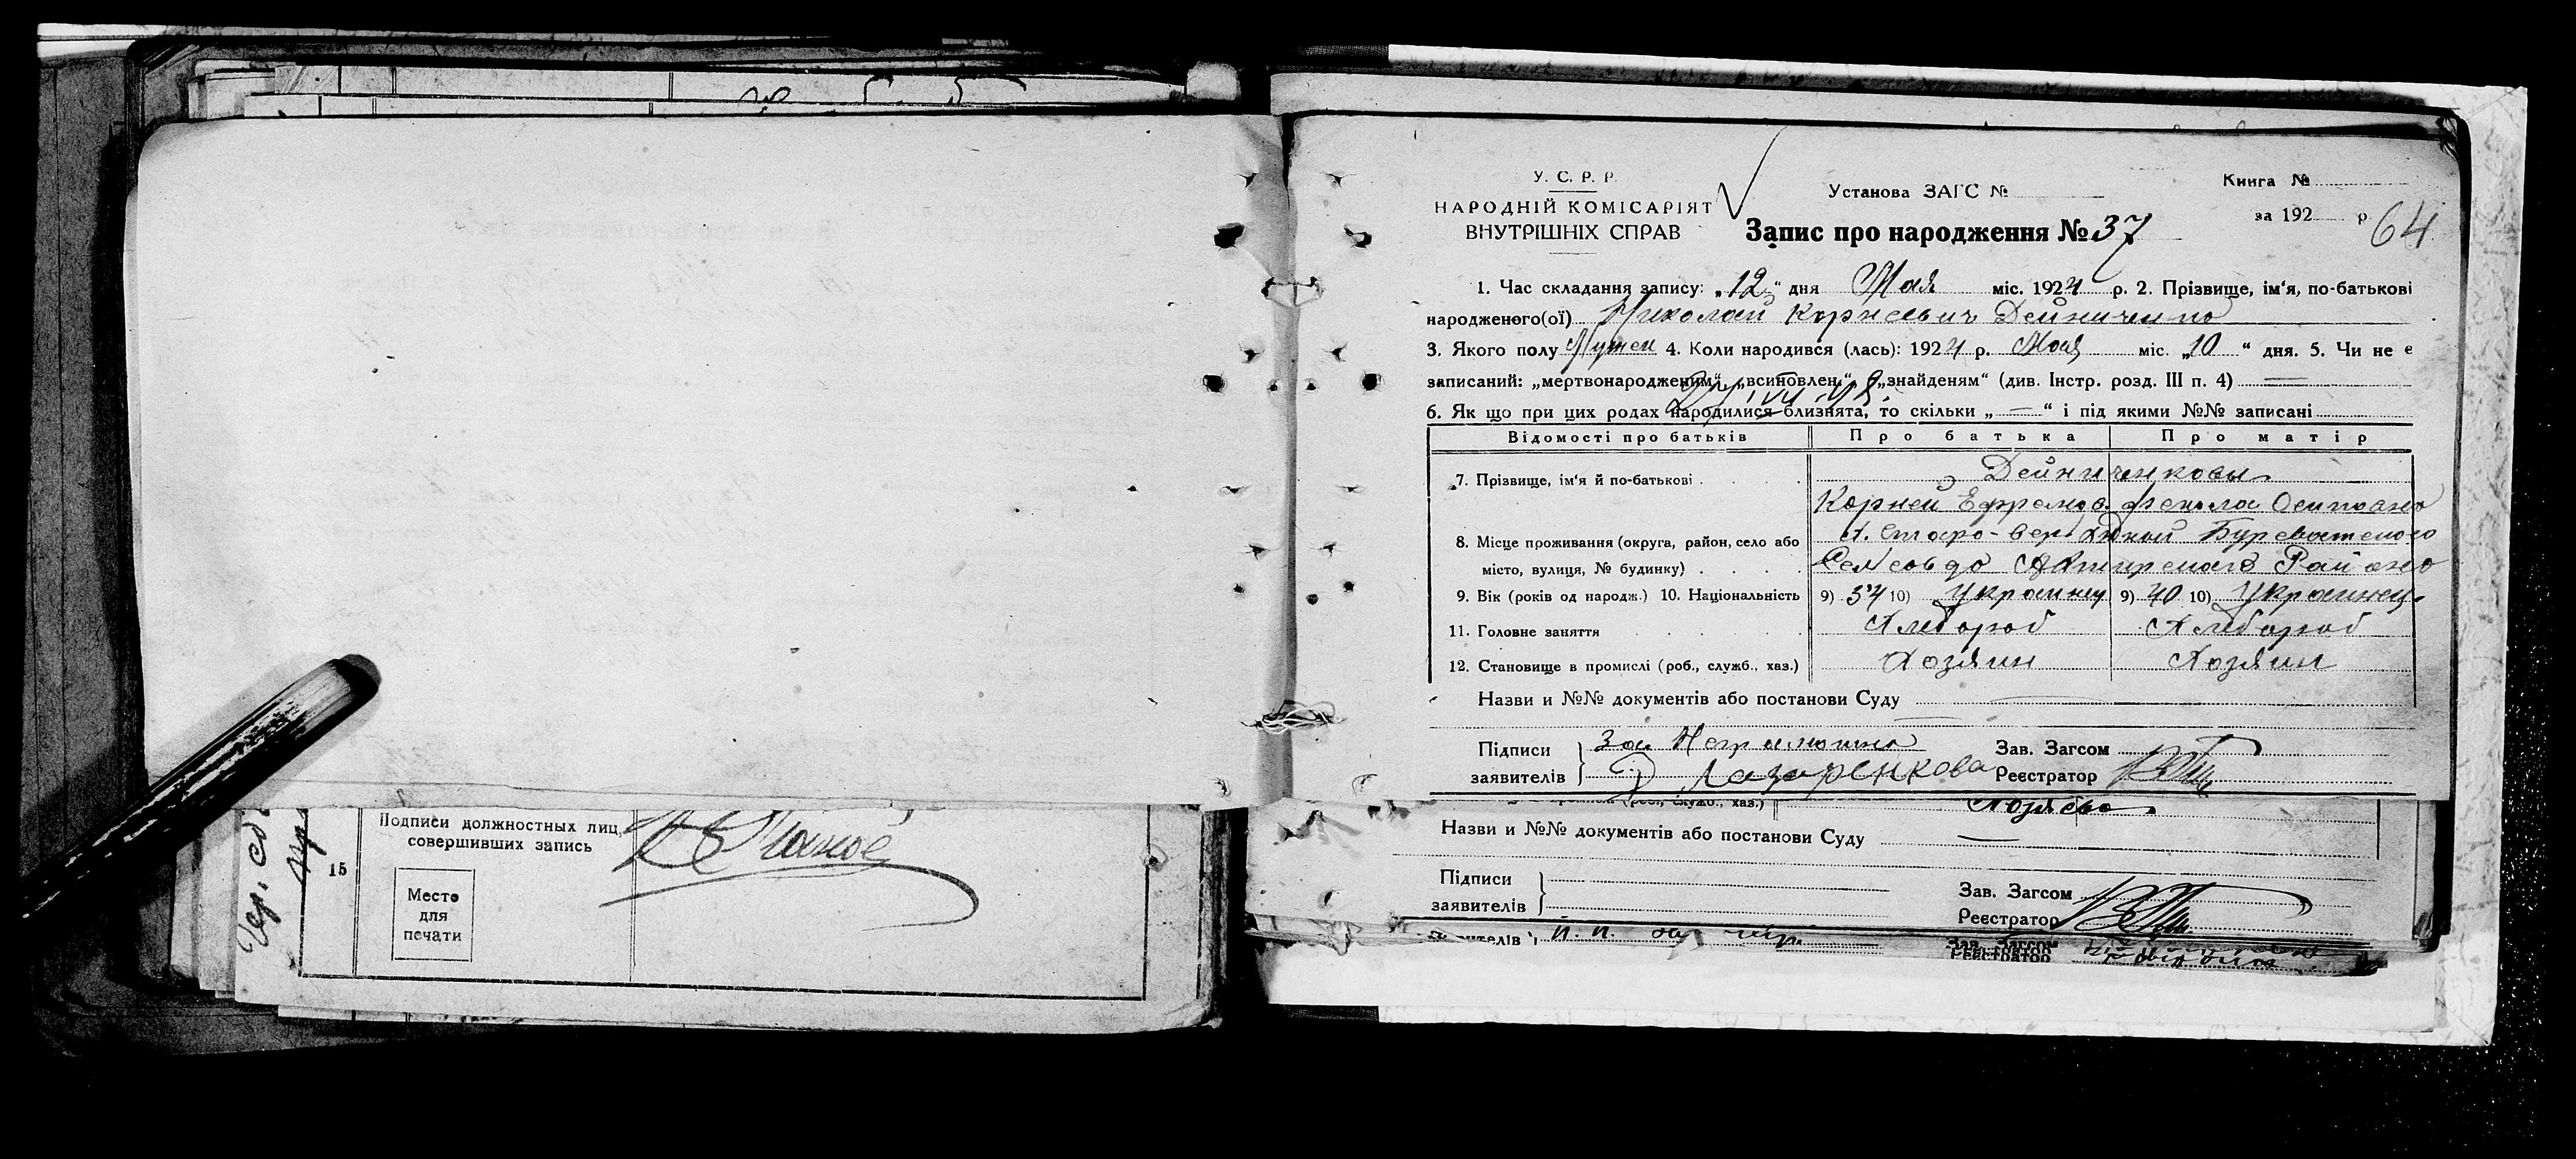 У. С. Р. Р.
НАРОДНІЙ КОМІСАРІЯТ
ВНУТРІШНІХ СПРАВ
Установа ЗАГС №
Книга №
за 192 р
64
Запис про народження № 37
1. Час складання запису: „12“ дня Мая міс. 1924 р. 2. Прізвище, ім'я, по-батькові
народженого(ої) Николай Корнеевич Дейниченко
3. Якого полу Мужск 4. Коли народився (лась): 1924 р. Мая міс. „10“ дня. 5. Чи не є
записаний: „мертвонародженим“, „всиновлен.“, „знайденям“ (див. Інстр. розд. III п. 4) —
6. Як що при цих родах народилися близнята, то скільки „—“ і під якими №№ записані
Відомості про батьків Про батька Про матір
7. Прізвище, ім'я й по-батькові Дейниченковы
Корней Ефремов. Фекла Осиповна
8. Місце проживання (округа, район, село або
місто, вулиця, № будинку)
Сельсовдо Ахтирского Района
9. Вік (років од народж.) 10. Національність 9) 34 10) Украинец 9) 40 10) Украинец
11. Головне заняття Хлебороб Хлебороб
12. Становище в промислі (роб., служб., хаз.) Хозяин Хозяин
Назви и №№ документів або постанови Суду —
Підписи
заявителів
За Неграмотно
Лазаренкова
Зав. Загсом
Реєстратор
Назви и №№ документів або постанови Суду —
Підписи
заявителів
Зав. Загсом
Реєстратор
Зав. Загсом
Реєстратор
15
Подписи должностных лиц,
совершивших запись
Место
для
печати